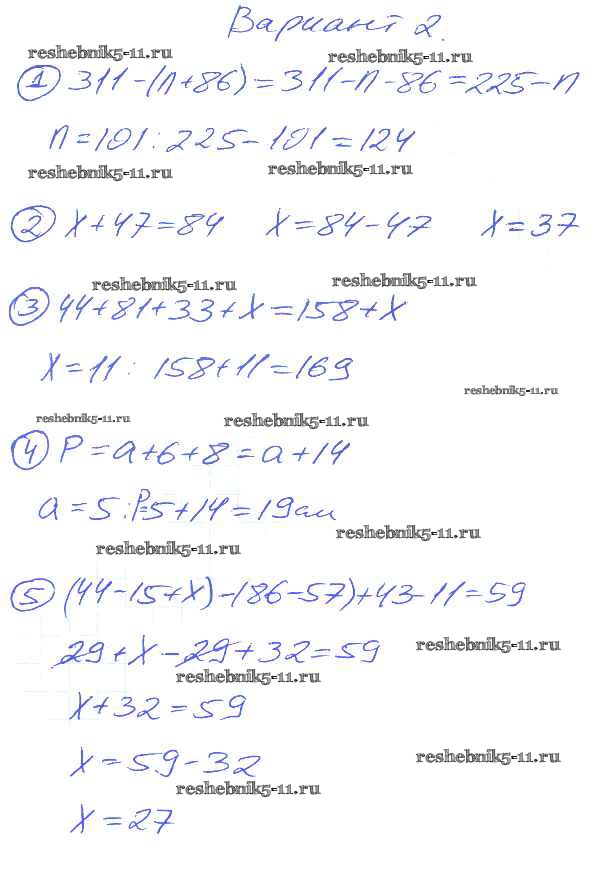 Вариант 2.
reshebnik5-11.ru reshebnik5-11.ru
① 311-(n+86)=311-n-86=225-n
n=101: 225-101=124
reshebnik5-11.ru reshebnik5-11.ru
② x+47=84 x=84-47 x=37
reshebnik5-11.ru reshebnik5-11.ru
③ 44+81+33+x=158+x
x=11: 158+11=169
reshebnik5-11.ru
reshebnik5-11.ru reshebnik5-11.ru
④ P=a+6+8=a+14
a=5: P=5+14=19см
reshebnik5-11.ru
reshebnik5-11.ru
⑤ (44-15+x)-(86-57)+43-11=59
29+x-29+32=59
reshebnik5-11.ru
reshebnik5-11.ru
x+32=59
x=59-32
reshebnik5-11.ru
reshebnik5-11.ru
x=27